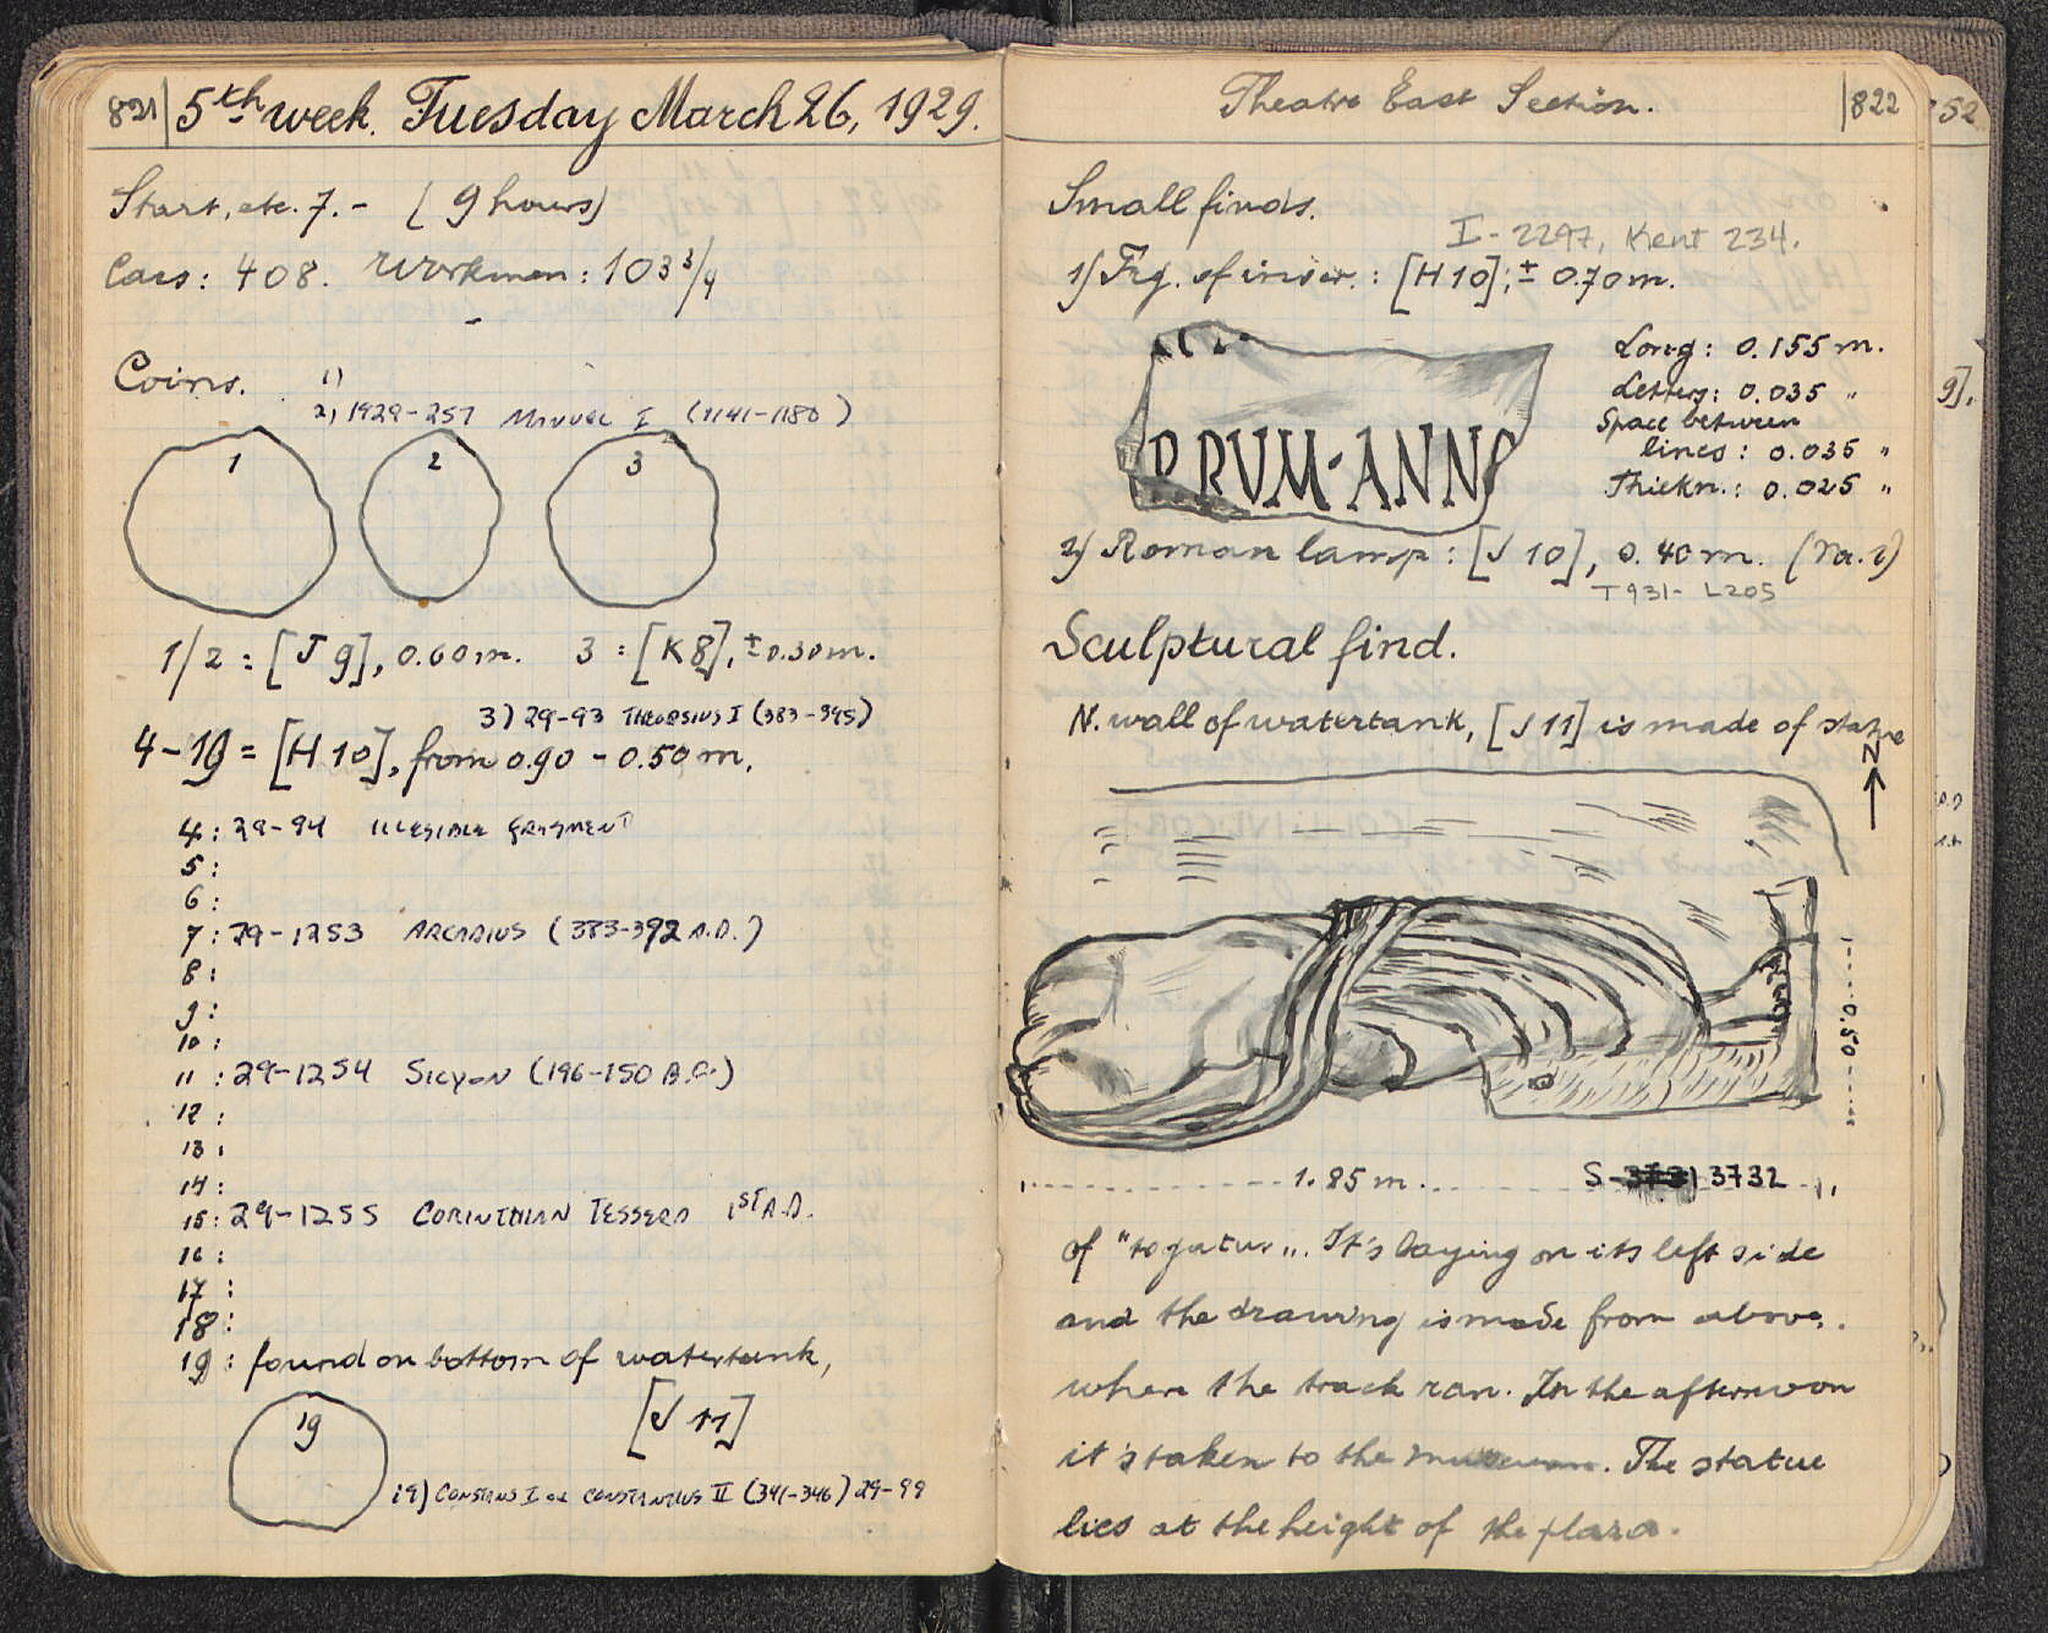 821 5th week. Tuesday March 26, 1929.
Start, etc. 7.- [9 hours)
Cars: 408. Workmen: 103 3/4
Coins. 1)
2) 1929-257 Manuel I (1141-1180)
1 2 3
1/2 = [J 9], 0.60 m. 3 = [K 8], ± 0.30 m.
3) 29-93 Theodsius I (383-395)
4-19 = [H 10], from 0.90 - 0.50 m.
4: 29-94 Illegible fragment
5:
6:
7: 29-1253 Arcadius (383-392 A.D.)
8:
9:
10:
11: 29-1254 Sicyon (196-150 B.C.)
12:
13:
14:
15: 29-1255 Corinthian Tessera 1st A.D.
16:
17:
18:
19: found on bottom of watertank,
19 [J 11]
19) Constans I or Constantius II (341-346) 29-99
Theatre East Section. 822
52
Small finds.
I-2297, Kent 234.
1) Frg. of inscr.: [H 10]; ± 0.70 m.
Long: 0.155 m.
Letters: 0.035 "
Space between
lines: 0.035 "
Thickn.: 0.025 "
RVM·ANN
2) Roman lamp: [J 10], 0.40 m. (Va. 1)
T 931- L205
Sculptural find.
N. wall of watertank, [J 11] is made of statue
N
0.50
1.85 m. S- 3732
of "togatus". It's laying on its left side
and the drawing is made from above.
when the track ran. In the afternoon
it's taken to the museum. The statue
lies at the height of the plaza.
9].